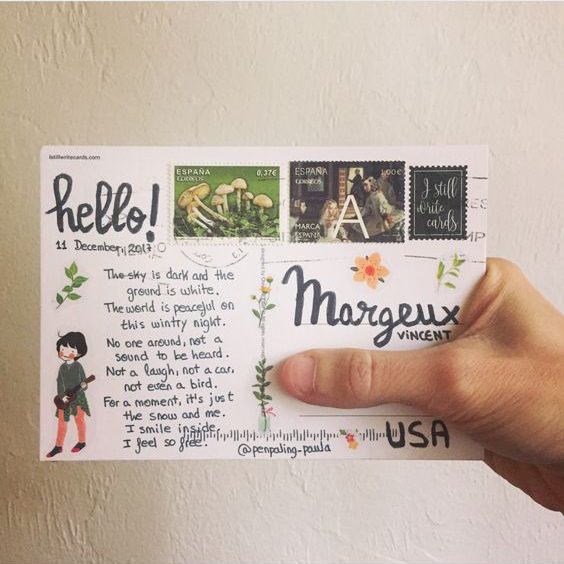 istillwritecards.com
hello!
11 December, 2017
The sky is dark and the
ground is white.
The world is peaceful on
this wintry night.
No one around, not a
sound to be heard.
Not a laugh, not a car,
not even a bird.
For a moment, it's just
the snow and me.
I smile inside,
I feel so free.
ESPAÑA
CORREOS
0,37€
ESPAÑA
CORREOS
1,00€
A
MARCA
ESPAÑA
I still
write
cards
Margeux
VINCENT
USA
@penpaling_paula